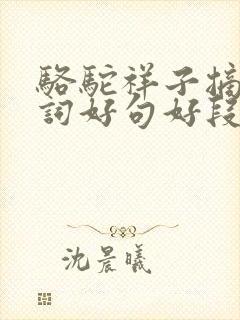 駱駝祥子摘
詞好句好段
沈晨曦